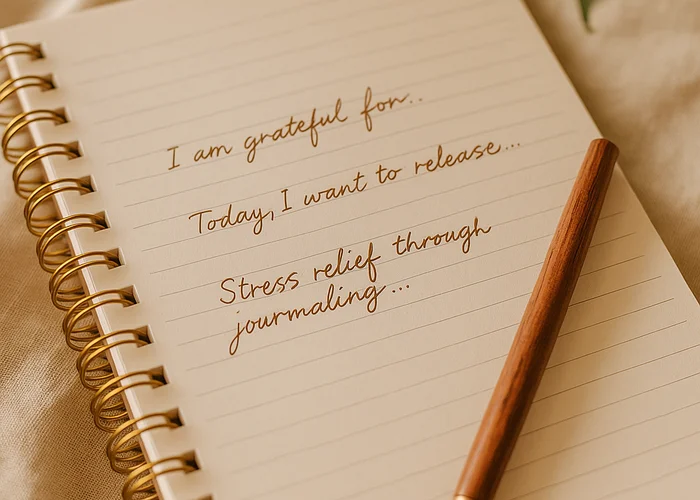 I am grateful fon..
Today, I want to release...
Stress relief through
jourmaling...